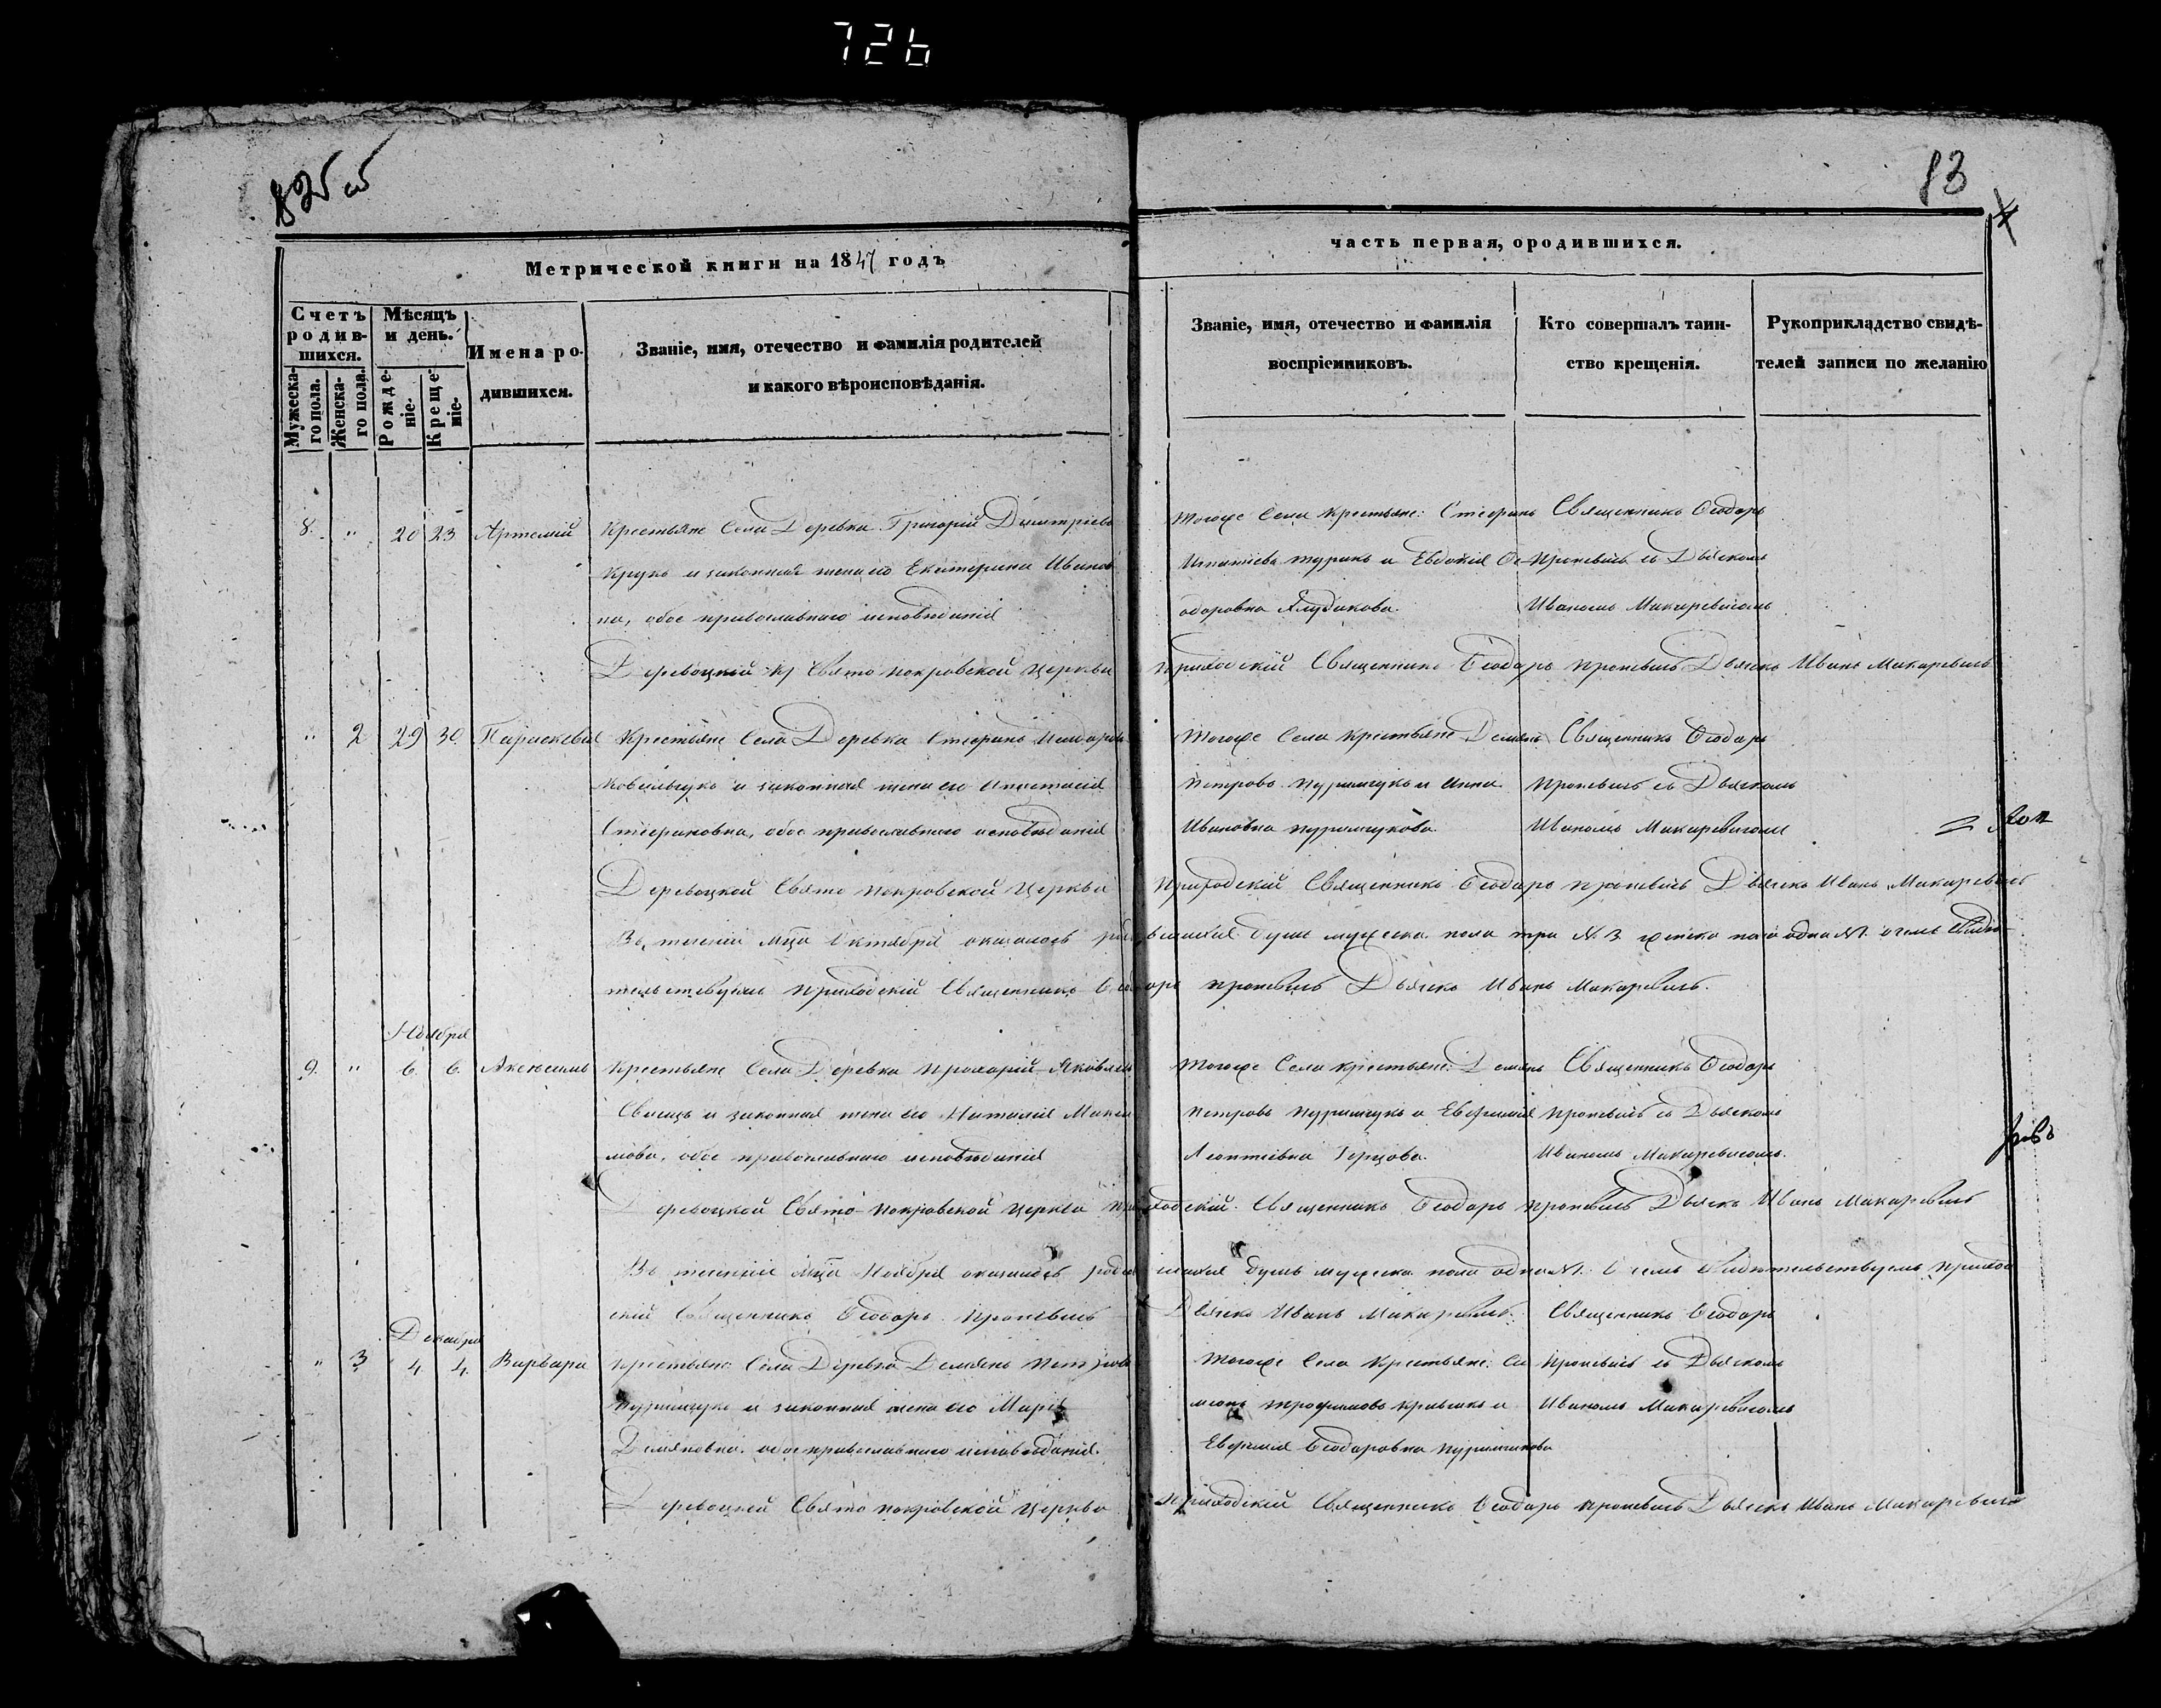 726
825 об
83
Метрической книги на 1847 годъ
часть первая, ородившихся.
Счетъ родив-шихся.
Мѣсяцъ и день.
Имена ро-дившихся.
Званіе, имя, отечество и фамилія родителей
и какого вѣроисповѣданія.
Званіе, имя, отечество и фамилія
воспріемниковъ.
Кто совершалъ таин-
ство крещенія.
Рукоприкладство свидѣ-
телей записи по желанію
Мужеска-го пола.
Женска-го пола.
Рожде-ніе.
Креще-ніе.
8. " 20 23 Артемій Крестьяне Села Деревка Григорій Дмитріевъ
Крукъ и законная жена его Екатерина Иванов
на, обое православнаго исповѣданія
Тогоже Села Крестьяне: Стефанъ
Игнатіевъ и Евдокія Ѳе
одоровна
Священникъ Ѳеодоръ
Проневичъ съ Дьячкомъ
Иваномъ Макаревичомъ
Деревоцкой Свято Покровской Церкви Приходскій Священникъ Ѳеодоръ Проневичъ Дьячекъ Иванъ Макаревичъ
" 2 29 30 Параскевія Крестьяне Села Деревка Стефанъ
Ковальчукъ и законная жена его Анастасія
Стефановна, обое православнаго исповѣданія
Тогоже Села Крестьяне Демянъ
Петровъ и Анна
Ивановна
Священникъ Ѳеодоръ
Проневичъ съ Дьячкомъ
Иваномъ Макаревичомъ
Деревоцкой Свято Покровской Церкви Приходскій Священникъ Ѳеодоръ Проневичъ Дьячекъ Иванъ Макаревичъ
Въ теченіи мца Октября оказалось родившихся душъ мужеска пола три №. 3. женско пола одна №1. о чемъ свидѣ-
тельствуемъ Приходскій Священникъ Ѳеодоръ Проневичъ Дьячекъ Иванъ Макаревичъ.
Ноября
9. " 6. 6. Крестьяне Села Деревка Прохорій Яковлевъ
и законная жена его Наталія Макси
мова, обое православнаго исповѣданія
Тогоже Села Крестьяне: Демянъ
Петровъ и Евфимія
Леонтіевна
Священникъ Ѳеодоръ
Проневичъ съ Дьячкомъ
Иваномъ Макаревичомъ.
Деревоцкой Свято Покровской Церкви Приходскій Священникъ Ѳеодоръ Проневичъ Дьячекъ Иванъ Макаревичъ
Въ теченіи мца Ноября оказалось родившихся душъ мужеска пола одна №1. О чемъ свидѣтельствуемъ Приход
скій Священникъ Ѳеодоръ Проневичъ Дьячекъ Иванъ Макаревичъ.
Декабря
" 3 4 4. Варвара Крестьяне Села Деревка Демянъ Петровъ
и законная жена его Марія
Демяновна, обое православнаго исповѣданія.
Тогоже Села Крестьяне: Си
меонъ Трофимовъ и
Евфимія Ѳеодоровна
Священникъ Ѳеодоръ
Проневичъ съ Дьячкомъ
Иваномъ Макаревичомъ
Деревоцкой Свято Покровской Церкви Приходскій Священникъ Ѳеодоръ Проневичъ Дьячекъ Иванъ Макаревичъ